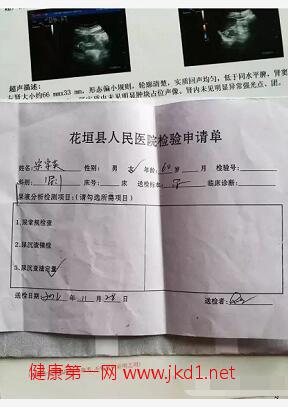 超声描述:
右肾大小约66 mmx33 mm, 形态偏小规则, 轮廓清楚, 实质回声均匀, 低于同水平脾, 肾窦
肾内未见明显异常强光点、团。
花垣县人民医院检验申请单
姓名: 性别: 男 女 年龄: 岁 月 检验号:
科别: 床号: 床 送检标本: 尿 临床诊断:
尿液分析检测项目:(请勾选所需项目)
1.尿常规检查
2.尿沉渣镜检
3.尿沉渣定量
送检日期: 年 11 月 28 日 送检者:
健康第一网 www.jkd1.net